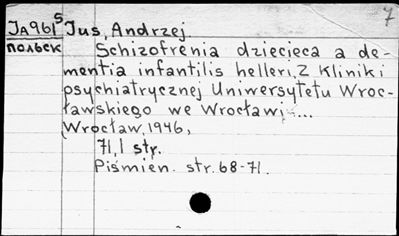 7
JA961 5 Jus, Andrzej
польск Schizofrenia dziecięca a de-
mentia infantilis helleri, Z Kliniki
psychiatrycznej Uniwersytetu Wroc-
ławskiego we Wrocławiu...
Wrocław, 1946,
71, 1 str.
Piśmien. str. 68-71.